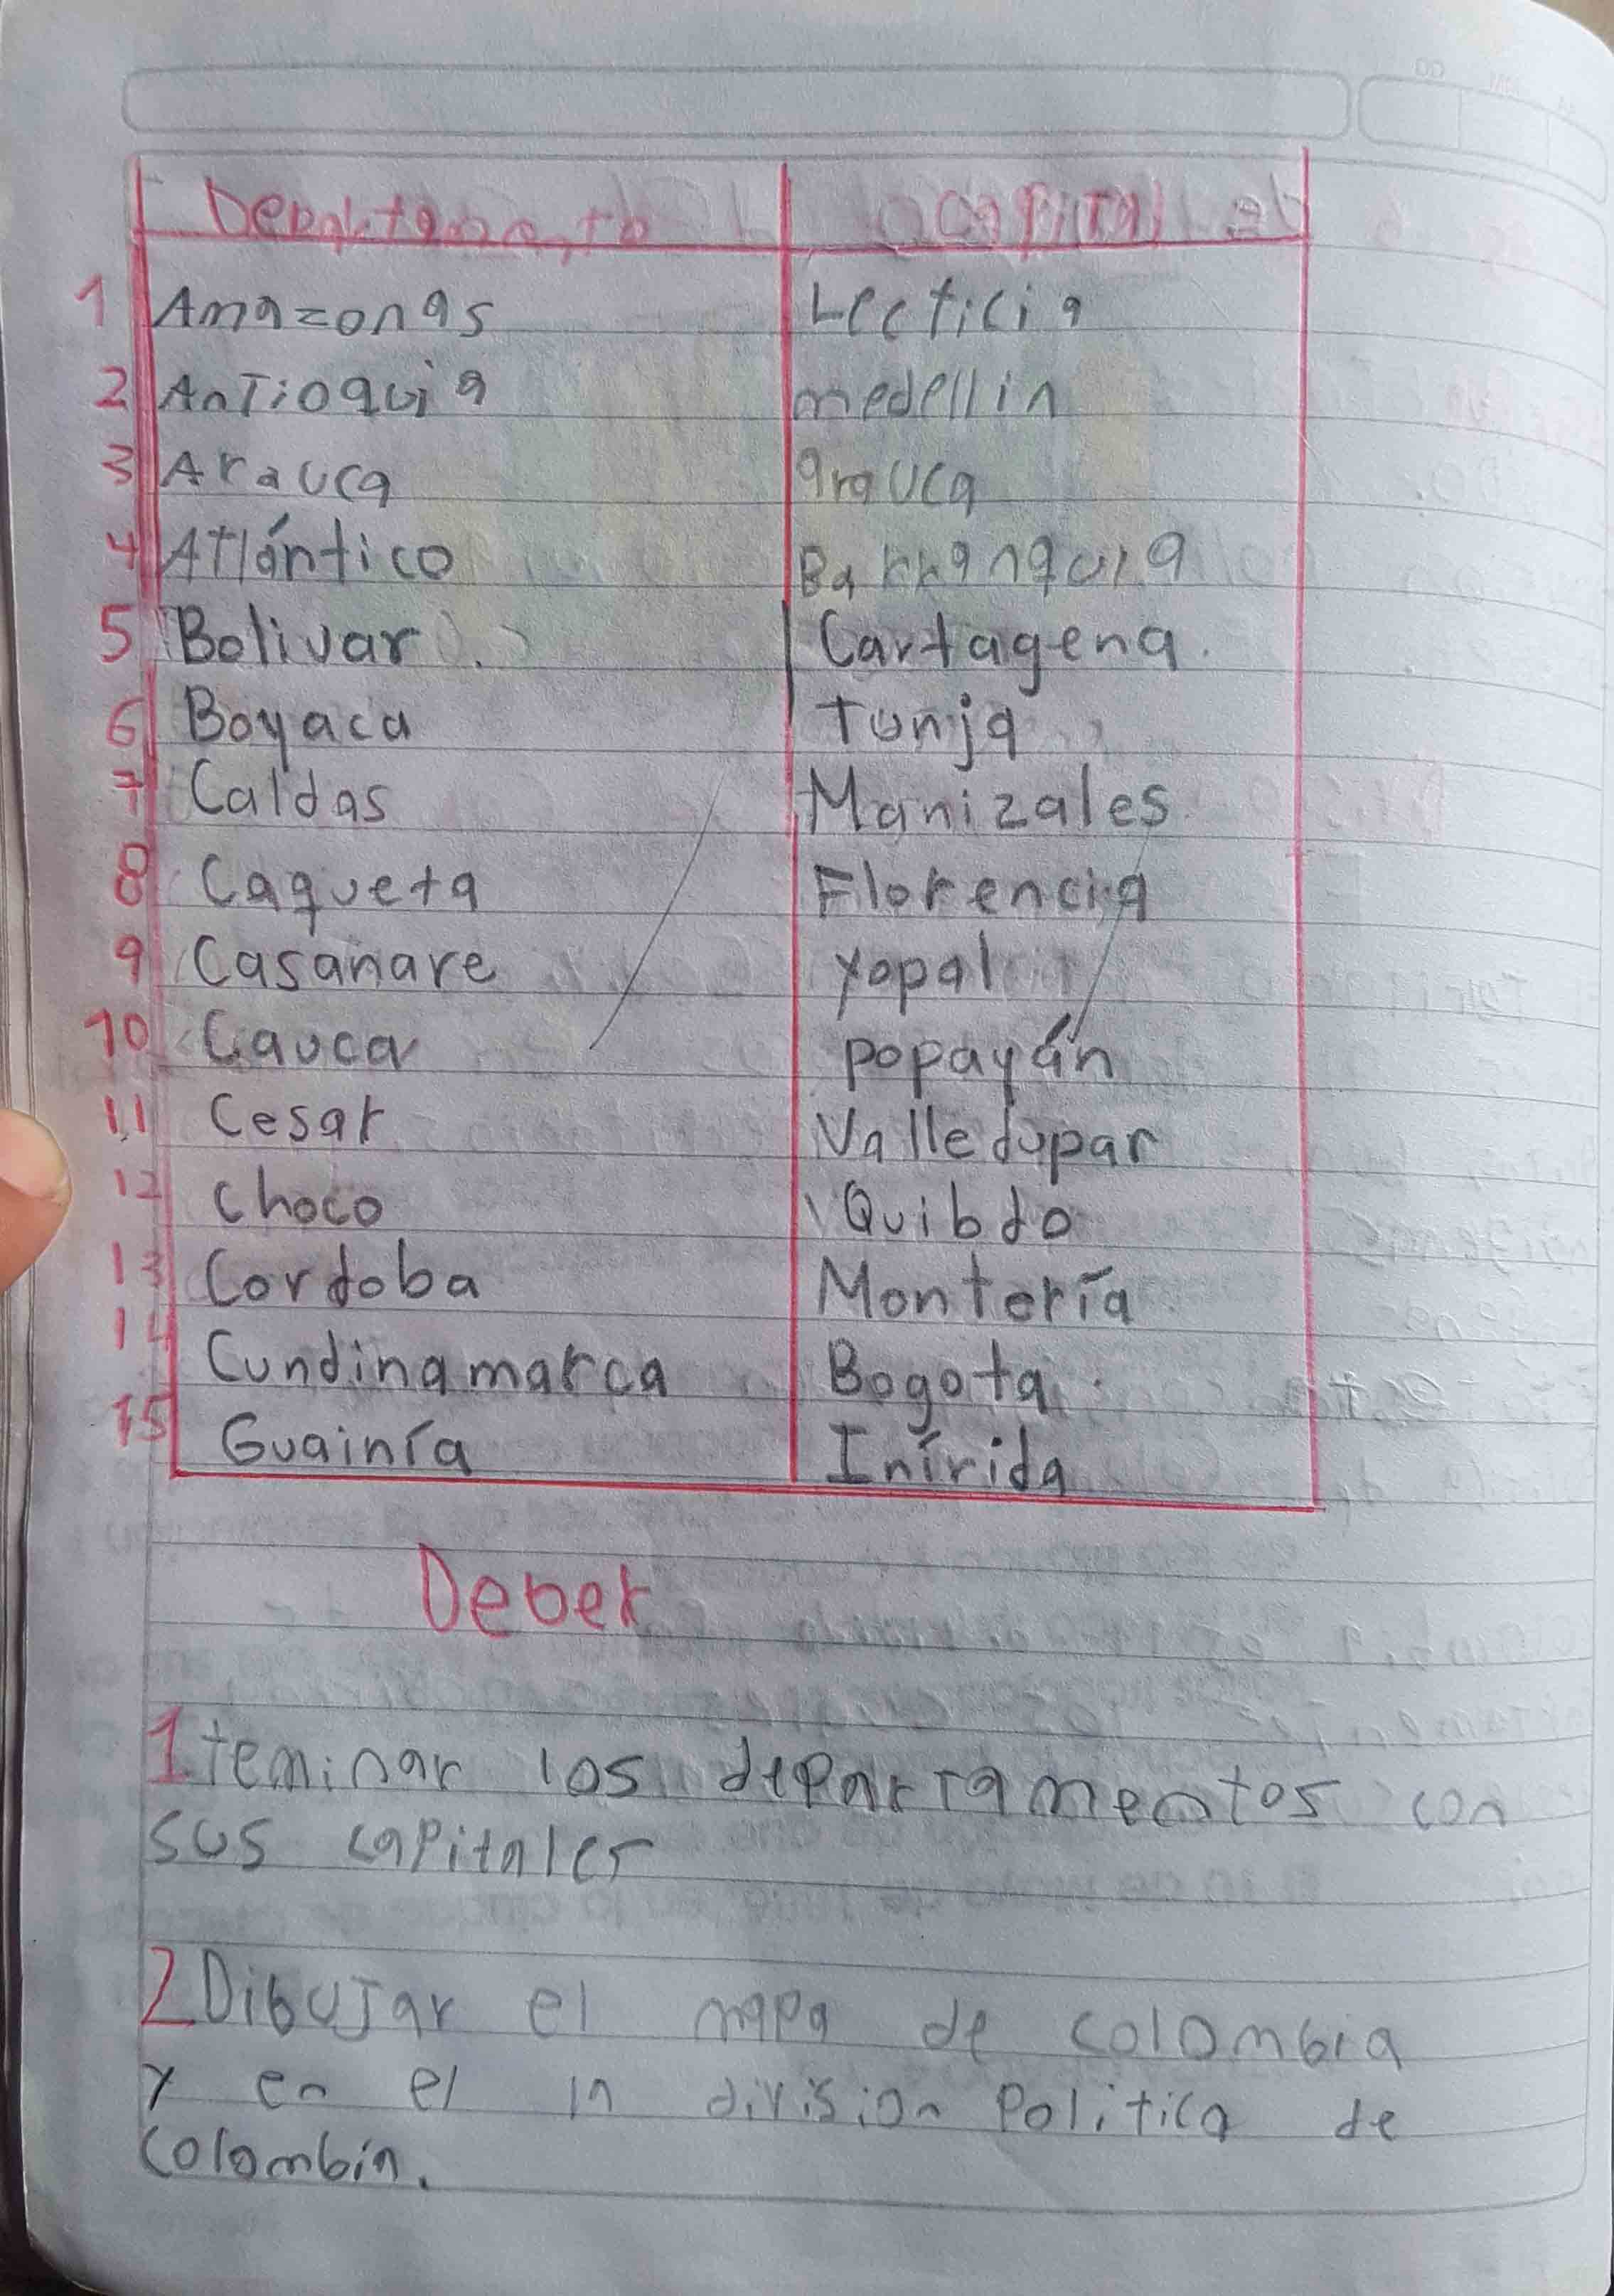 Departamento Capital
1 Amazonas Lecticia
2 Antioquia medellin
3 Arauca arauca
4 Atlántico Barranquia
5 Bolivar. Cartagena.
6 Boyaca Tunja
7 Caldas Manizales
8 Caqueta Florencia
9 Casanare Yopal
10 Cauca popayán
11 Cesar Valledupar
12 Choco Quibdo
13 Cordoba Montería
14 Cundinamarca Bogota.
15 Guainía Inírida
Deber
1 teminar los departamentos con
sus capitales
2 Dibujar el mapa de colombia
y en el la division Politica de
colombia.